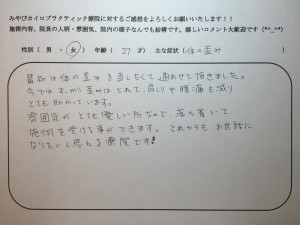 みやびカイロプラクティック療院に対するご感想をよろしくお願いいたします!!
施術内容、院長の人柄・雰囲気、院内の様子なんでも結構です。嬉しいコメント大歓迎です(*^_^*)
性別(男・女) 年齢(27才) 主な症状(体の歪み)
最初は体の歪みを直したくて通わせて頂きました。
今ではすっかり歪みはとれて、肩こりや腰痛も減り
とても助かっています。
雰囲気がとても優しい所なので、落ち着いて
施術を受ける事ができます。これからもお世話に
なりたいと思える療院です!